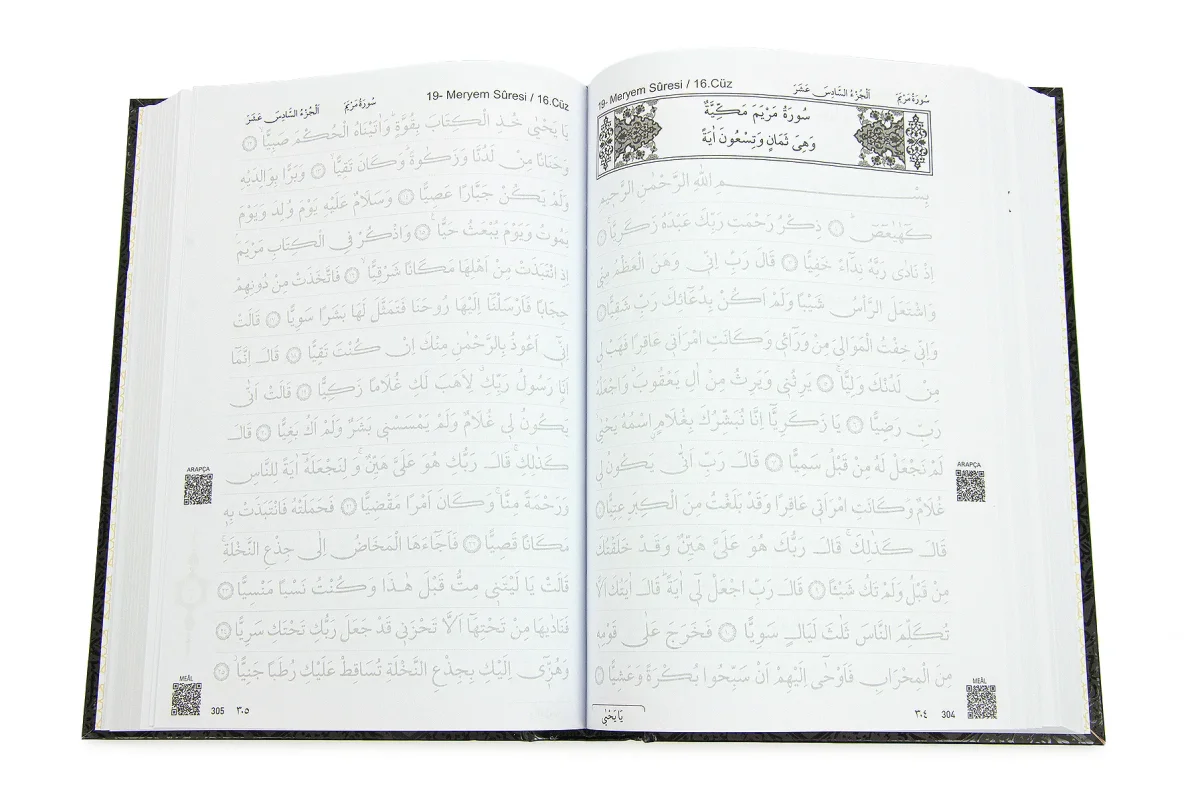 19- Meryem Sûresi / 16.Cüz
اَلْجُزْءُ السَّادِسَ عَشَرَ
سُورَةُ مَرْيَمَ
سُورَةُ مَرْيَمَ مَكِّيَّةٌ
وَهِيَ ثَمَانٍ وَتِسْعُونَ اٰيَةً
بِسْمِ اللّٰهِ الرَّحْمٰنِ الرَّحِيمِ
كٓهٰيٰعٓصٓ ۝١ ذِكْرُ رَحْمَتِ رَبِّكَ عَبْدَهُ زَكَرِيَّا ۝٢
اِذْ نَادٰى رَبَّهُ نِدَٓاءً خَفِيًّا ۝٣ قَالَ رَبِّ اِنّ۪ي وَهَنَ الْعَظْمُ مِنّ۪ي
وَاشْتَعَلَ الرَّأْسُ شَيْبًا وَلَمْ اَكُنْ بِدُعَٓائِكَ رَبِّ شَقِيًّا ۝٤
وَاِنّ۪ي خِفْتُ الْمَوَالِيَ مِنْ وَرَٓائ۪ي وَكَانَتِ امْرَاَت۪ي عَاقِرًا فَهَبْ ل۪ي
مِنْ لَدُنْكَ وَلِيًّا ۝٥ يَرِثُن۪ي وَيَرِثُ مِنْ اٰلِ يَعْقُوبَ وَاجْعَلْهُ
رَبِّ رَضِيًّا ۝٦ يَا زَكَرِيَّٓا اِنَّا نُبَشِّرُكَ بِغُلَامٍ اسْمُهُ يَحْيٰى
لَمْ نَجْعَلْ لَهُ مِنْ قَبْلُ سَمِيًّا ۝٧ قَالَ رَبِّ اَنّٰى يَكُونُ ل۪ي
غُلَامٌ وَكَانَتِ امْرَاَت۪ي عَاقِرًا وَقَدْ بَلَغْتُ مِنَ الْكِبَرِ عِتِيًّا ۝٨
قَالَ كَذٰلِكَ قَالَ رَبُّكَ هُوَ عَلَيَّ هَيِّنٌ وَقَدْ خَلَقْتُكَ
مِنْ قَبْلُ وَلَمْ تَكُ شَيْئًا ۝٩ قَالَ رَبِّ اجْعَلْ ل۪ٓي اٰيَةً قَالَ اٰيَتُكَ اَلَّا
تُكَلِّمَ النَّاسَ ثَلٰثَ لَيَالٍ سَوِيًّا ۝١٠ فَخَرَجَ عَلٰى قَوْمِه۪
مِنَ الْمِحْرَابِ فَاَوْحٰٓى اِلَيْهِمْ اَنْ سَبِّحُوا بُكْرَةً وَعَشِيًّا ۝١١
يَا يَحْيٰى
ARAPÇA
MEÂL
٣٠٤ 304
19- Meryem Sûresi / 16.Cüz
سُورَةُ مَرْيَمَ
اَلْجُزْءُ السَّادِسَ عَشَرَ
يَا يَحْيٰى خُذِ الْكِتَابَ بِقُوَّةٍ وَاٰتَيْنَاهُ الْحُكْمَ صَبِيًّا ۝١٢
وَحَنَانًا مِنْ لَدُنَّا وَزَكٰوةً وَكَانَ تَقِيًّا ۝١٣ وَبَرًّا بِوَالِدَيْهِ
وَلَمْ يَكُنْ جَبَّارًا عَصِيًّا ۝١٤ وَسَلَامٌ عَلَيْهِ يَوْمَ وُلِدَ وَيَوْمَ
يَمُوتُ وَيَوْمَ يُبْعَثُ حَيًّا ۝١٥ وَاذْكُرْ فِي الْكِتَابِ مَرْيَمَ
اِذِ انْتَبَذَتْ مِنْ اَهْلِهَا مَكَانًا شَرْقِيًّا ۝١٦ فَاتَّخَذَتْ مِنْ دُونِهِمْ
حِجَابًا فَاَرْسَلْنَٓا اِلَيْهَا رُوحَنَا فَتَمَثَّلَ لَهَا بَشَرًا سَوِيًّا ۝١٧ قَالَتْ
اِنّ۪ٓي اَعُوذُ بِالرَّحْمٰنِ مِنْكَ اِنْ كُنْتَ تَقِيًّا ۝١٨ قَالَ اِنَّمَٓا
اَنَا۬ رَسُولُ رَبِّكِ لِاَهَبَ لَكِ غُلَامًا زَكِيًّا ۝١٩ قَالَتْ اَنّٰى
يَكُونُ ل۪ي غُلَامٌ وَلَمْ يَمْسَسْن۪ي بَشَرٌ وَلَمْ اَكُ بَغِيًّا ۝٢٠ قَالَ
كَذٰلِكِ قَالَ رَبُّكِ هُوَ عَلَيَّ هَيِّنٌ وَلِنَجْعَلَهُٓ اٰيَةً لِلنَّاسِ
وَرَحْمَةً مِنَّا وَكَانَ اَمْرًا مَقْضِيًّا ۝٢١ فَحَمَلَتْهُ فَانْتَبَذَتْ بِه۪
مَكَانًا قَصِيًّا ۝٢٢ فَاَجَٓاءَهَا الْمَخَاضُ اِلٰى جِذْعِ النَّخْلَةِ
قَالَتْ يَا لَيْتَن۪ي مِتُّ قَبْلَ هٰذَا وَكُنْتُ نَسْيًا مَنْسِيًّا ۝٢٣
فَنَادٰيهَا مِنْ تَحْتِهَٓا اَلَّا تَحْزَن۪ي قَدْ جَعَلَ رَبُّكِ تَحْتَكِ سَرِيًّا ۝٢٤
وَهُزّ۪ٓي اِلَيْكِ بِجِذْعِ النَّخْلَةِ تُسَاقِطْ عَلَيْكِ رُطَبًا جَنِيًّا ۝٢٥
ARAPÇA
MEÂL
305 ٣٠٥